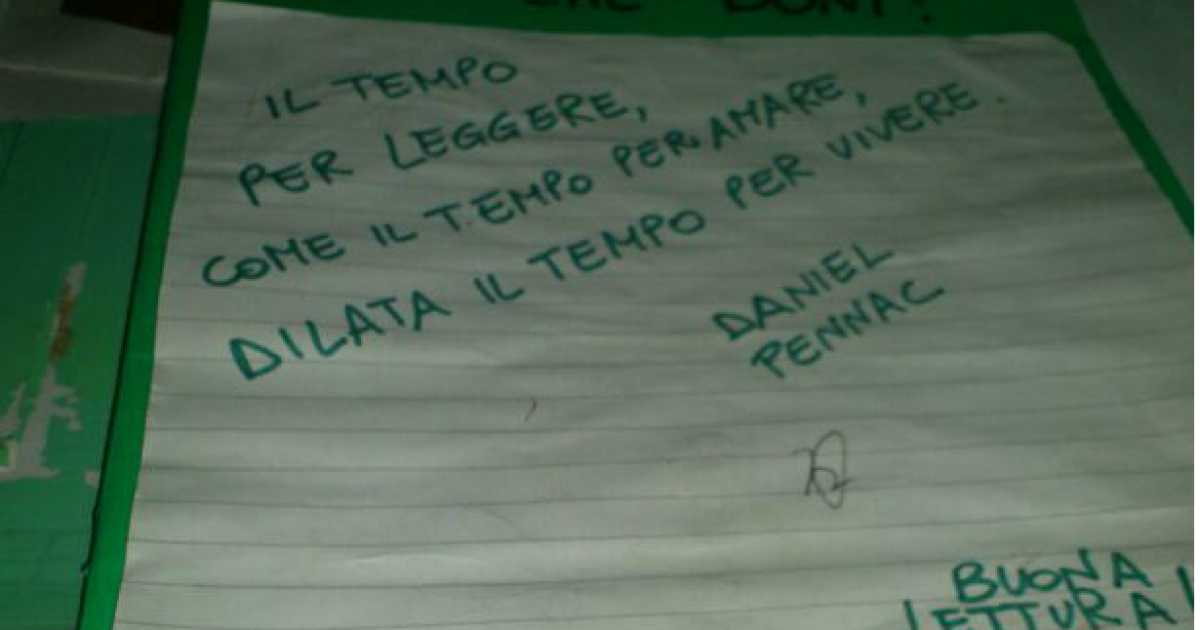 IL TEMPO
PER LEGGERE,
COME IL TEMPO PER AMARE,
DILATA IL TEMPO PER VIVERE.
DANIEL
PENNAC
BUONA
LETTURA!